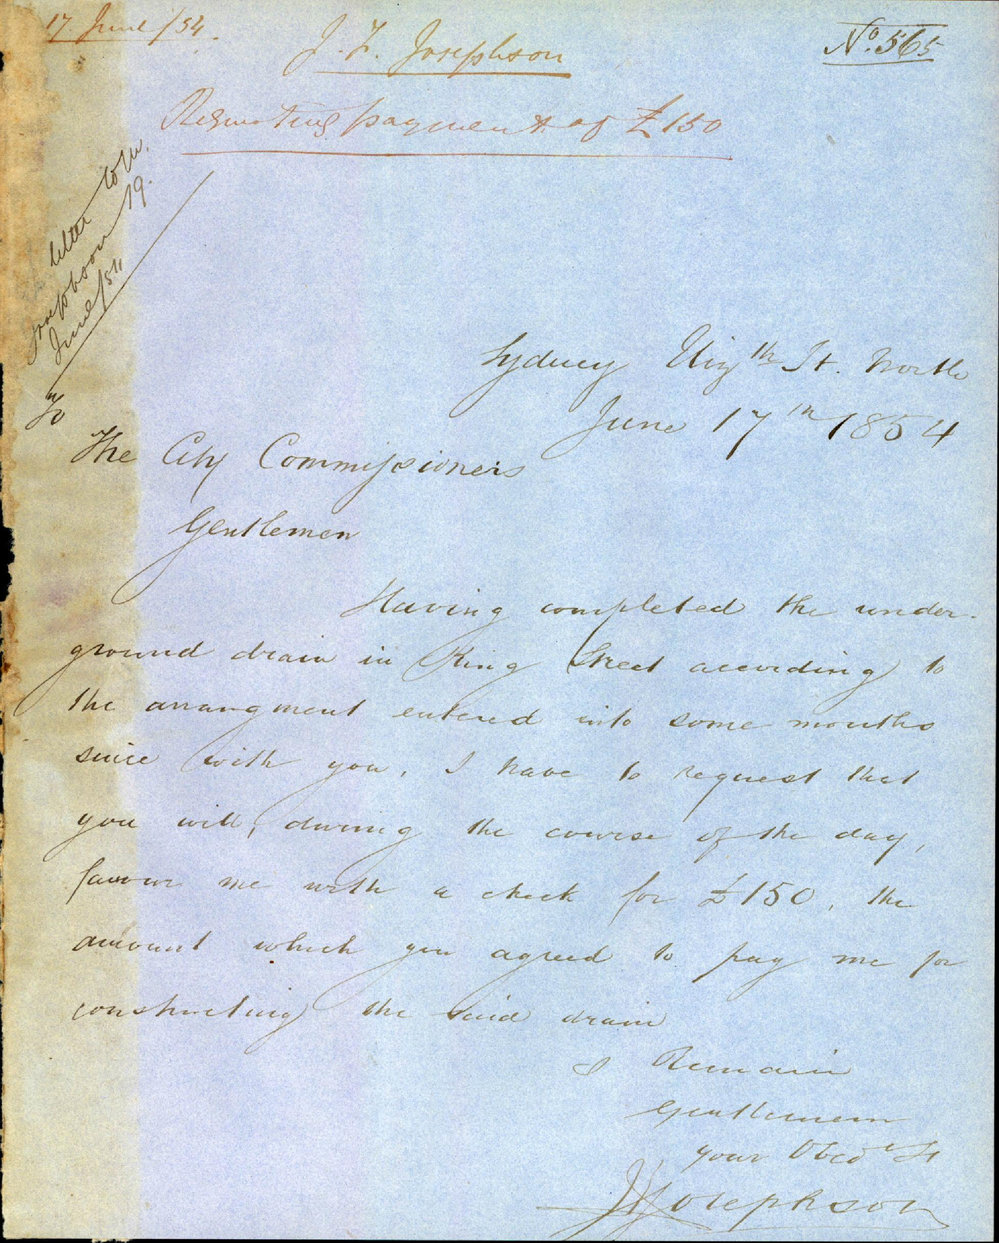 17 June /54.
J. F. Josephson
No. 565
Requesting payment of £150
letter to Mr.
Josephson 19.
June /54
To
The City Commissioners
Sydney Elizth St. North
June 17th 1854
Gentlemen
Having completed the under-
ground drain in King Street according to
the arrangment entered into some months
since with you, I have to request that
you will, during the course of the day,
favour me with a check for £150, the
amount which you agreed to pay me for
constructing the said drain
I Remain
Gentlemen
your Obedt St
J F Josephson